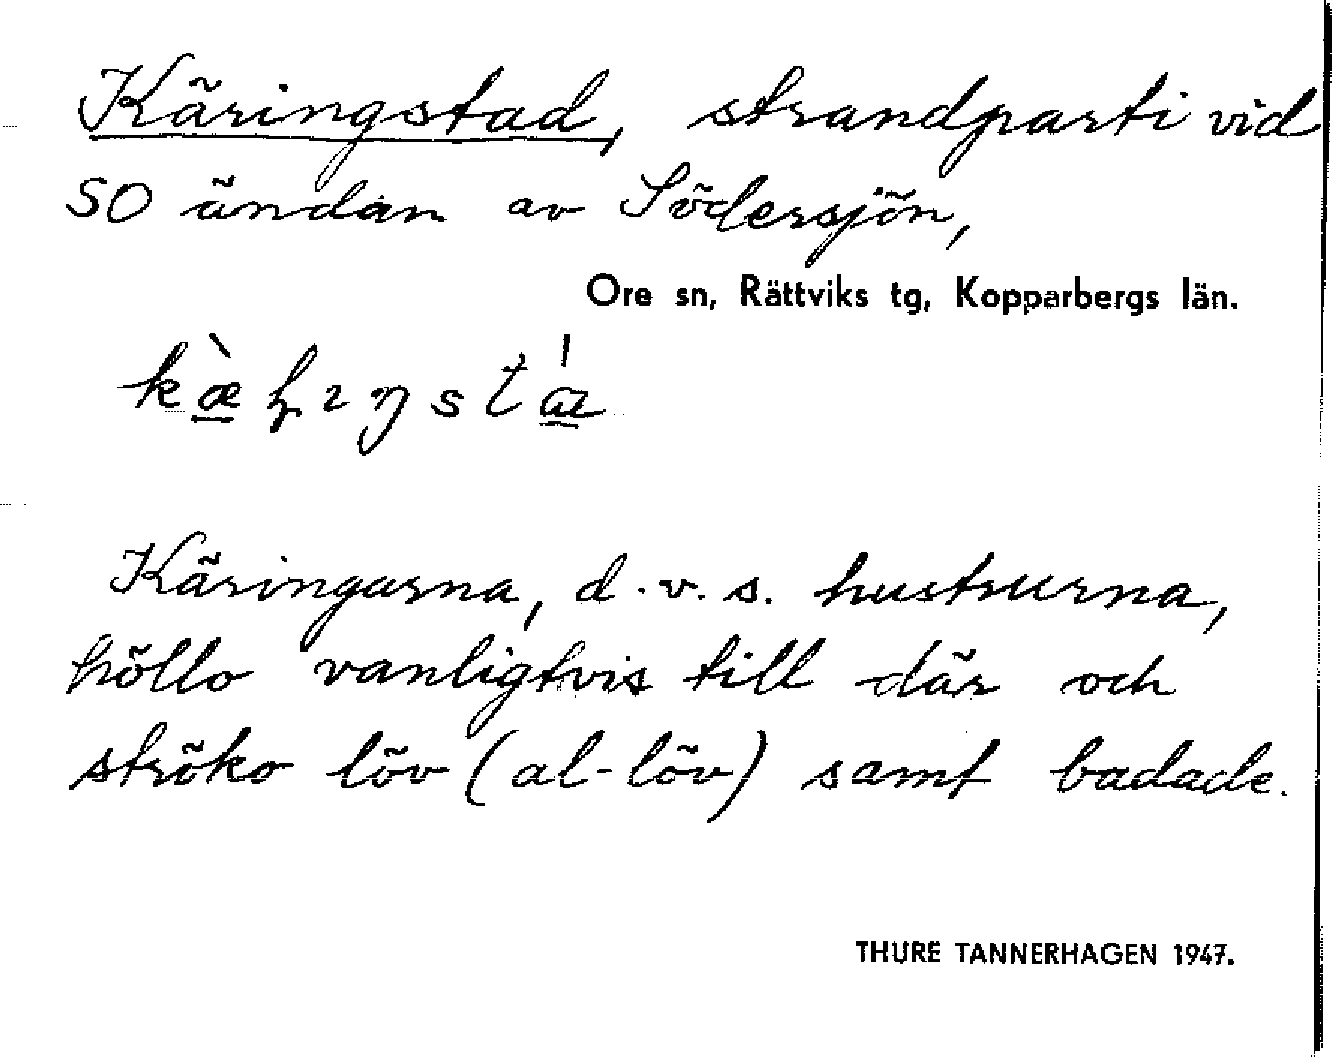 Käringstad, strandparti vid
SO ändan av Södersjön,
Ore sn, Rättviks tg, Kopparbergs län.
Käringarna, d.v.s. hustrurna,
höllo vanligtvis till där och
ströko löv (al-löv) samt badade.
THURE TANNERHAGEN 1947.